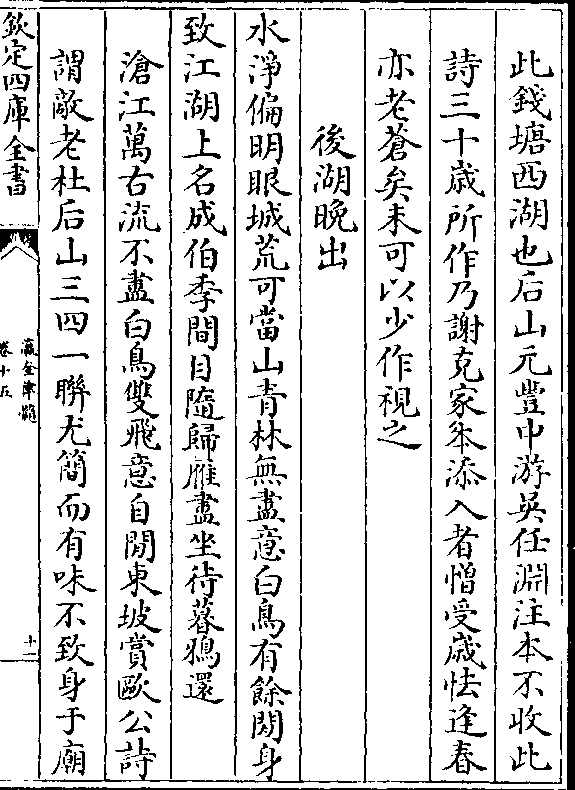 此錢塘西湖也后山元豐中游吳任淵注本不收此
詩三十歳所作乃謝克家本添入者憎受歳怯逢春
亦老蒼矣未可以少作視之
後湖晚出
水淨偏明眼城荒可當山青林無盡意白鳥有餘閒身
致江湖上名成伯季間目隨歸雁盡坐待暮鴉還
滄江萬古流不盡白鳥雙飛意自閒東坡賞歐公詩
謂敵老杜后山三四一聯尤簡而有味不致身于廟
欽定四庫全書
瀛奎律髓
卷十五
十一